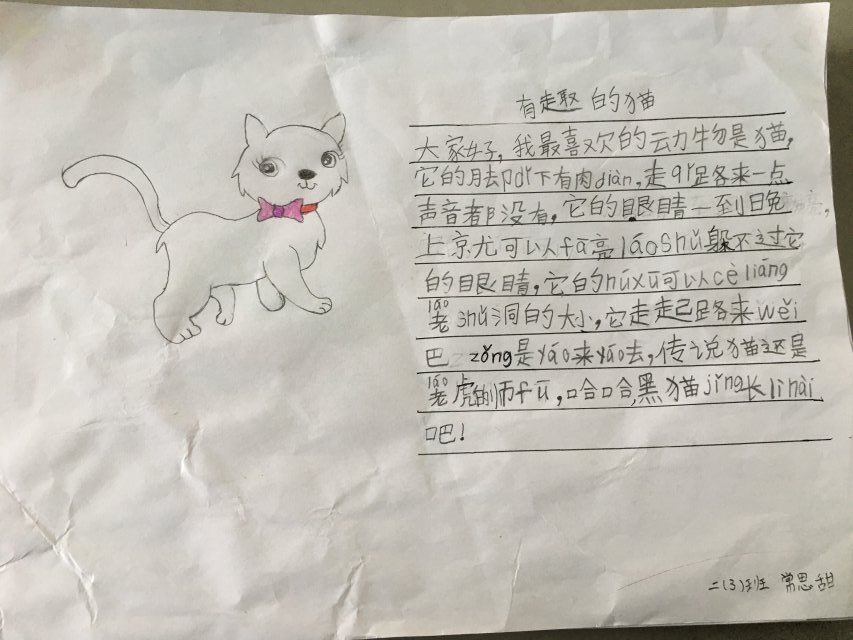 有趣的猫
大家好，我最喜欢的动物是猫，
它的脚dǐ下有肉diàn，走qǐ路来一点
声音都没有，它的眼睛一到日免
上京尤可以fā亮lǎoshǔ躲不过它
的眼睛，它的húxū可以cèliáng
lǎo
老shǔ洞的大小，它走走已路来wěi
巴zǒng是yáo来yáo去，传说猫还是
lǎo
老虎的师fū，哈哈，黑猫jǐng长lìhài
吧！
二(3)班 常思甜